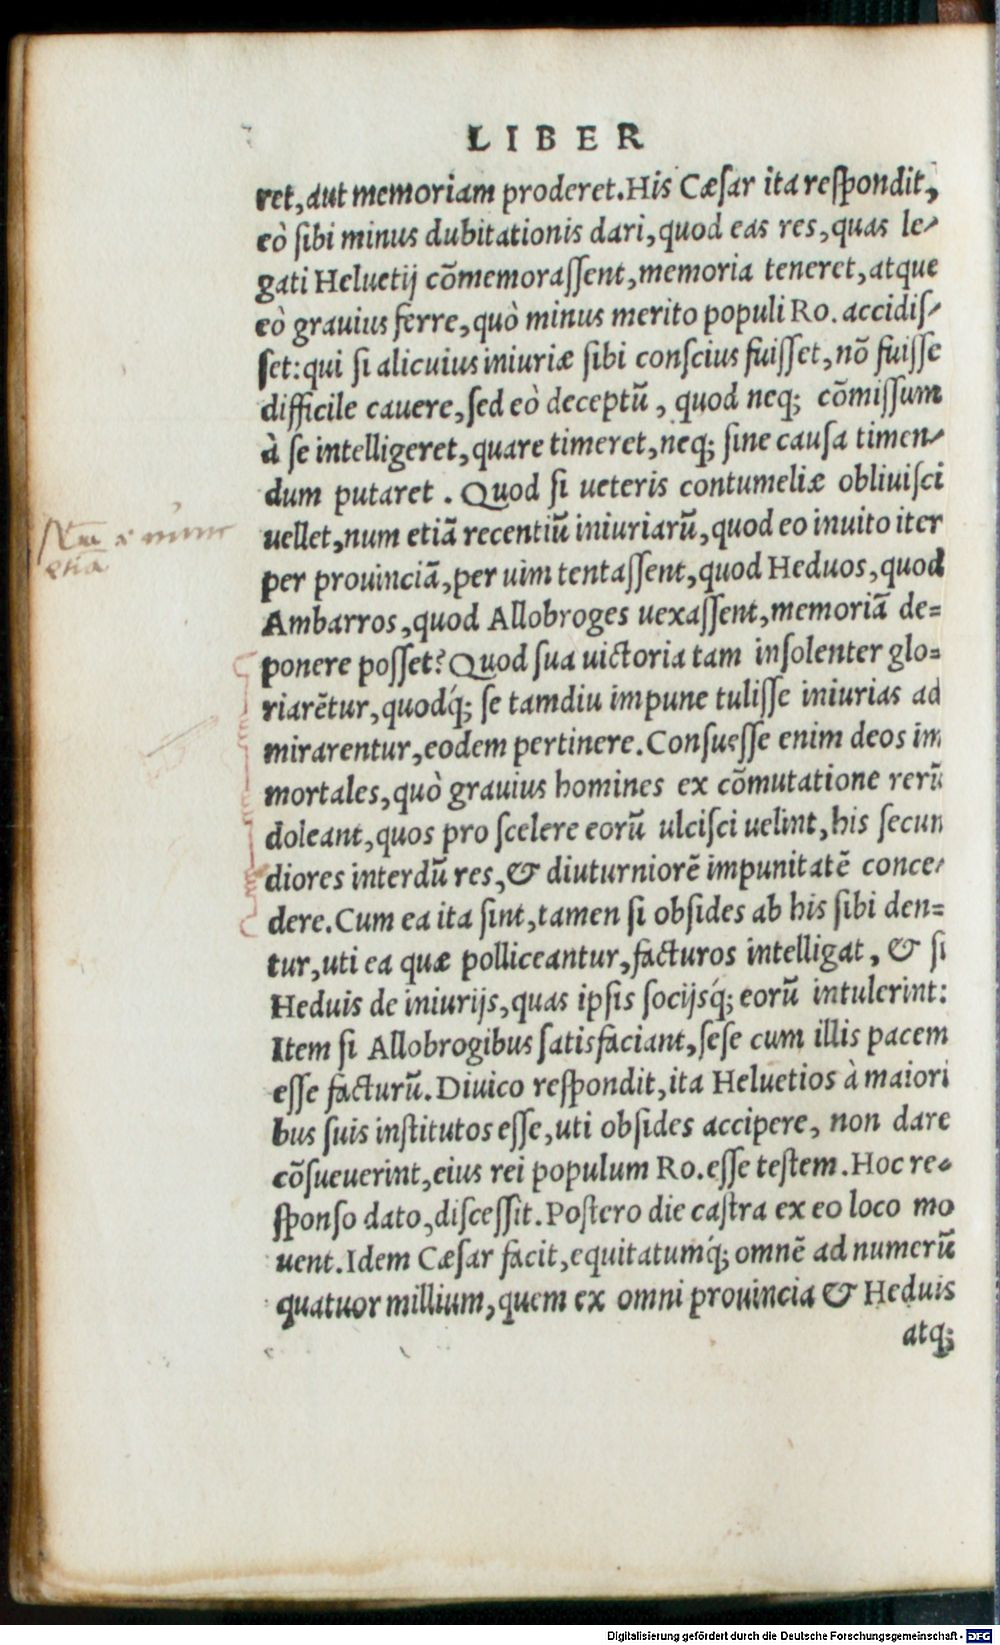 LIBER
ret, aut memoriam proderet. His Cæſar ita reſpondit,
eò ſibi minus dubitationis dari, quod eas res, quas le-
gati Heluetij cõmemoraſſent, memoria teneret, atque
eò grauius ferre, quò minus merito populi Ro. accidiſ-
ſet: qui ſi alicuius iniuriæ ſibi conſcius fuiſſet, nõ fuiſſe
difficile cauere, ſed eò deceptũ, quod neq; cõmiſſum
à ſe intelligeret, quare timeret, neq; ſine cauſa timen-
dum putaret. Quod ſi ueteris contumeliæ obliuiſci
uellet, num etiã recentiũ iniuriarũ, quod eo inuito iter
per prouinciã, per uim tentaſſent, quod Heduos, quod
Ambarros, quod Allobroges uexaſſent, memoriã de=
ponere poſſet? Quod ſua uictoria tam inſolenter glo=
riarẽtur, quodq́; ſe tamdiu impune tuliſſe iniurias ad
mirarentur, eodem pertinere. Conſueſſe enim deos im
mortales, quò grauius homines ex cõmutatione rerũ
doleant, quos pro ſcelere eorũ ulciſci uelint, his ſecun
diores interdũ res, & diuturniorẽ impunitatẽ conce-
dere. Cum ea ita ſint, tamen ſi obſides ab his ſibi den=
tur, uti ea quæ polliceantur, facturos intelligat, & ſi
Heduis de iniurijs, quas ipſis ſocijsq́; eorũ intulerint:
Item ſi Allobrogibus ſatisfaciant, ſeſe cum illis pacem
eſſe facturũ. Diuico reſpondit, ita Heluetios à maiori
bus ſuis inſtitutos eſſe, uti obſides accipere, non dare
cõſueuerint, eius rei populum Ro. eſſe teſtem. Hoc re-
ſponſo dato, diſceſſit. Poſtero die caſtra ex eo loco mo
uent. Idem Cæſar facit, equitatumq́; omnẽ ad numerũ
quatuor millium, quem ex omni prouincia & Heduis
atq;
etiã
Digitalisierung gefördert durch die Deutsche Forschungsgemeinschaft - DFG